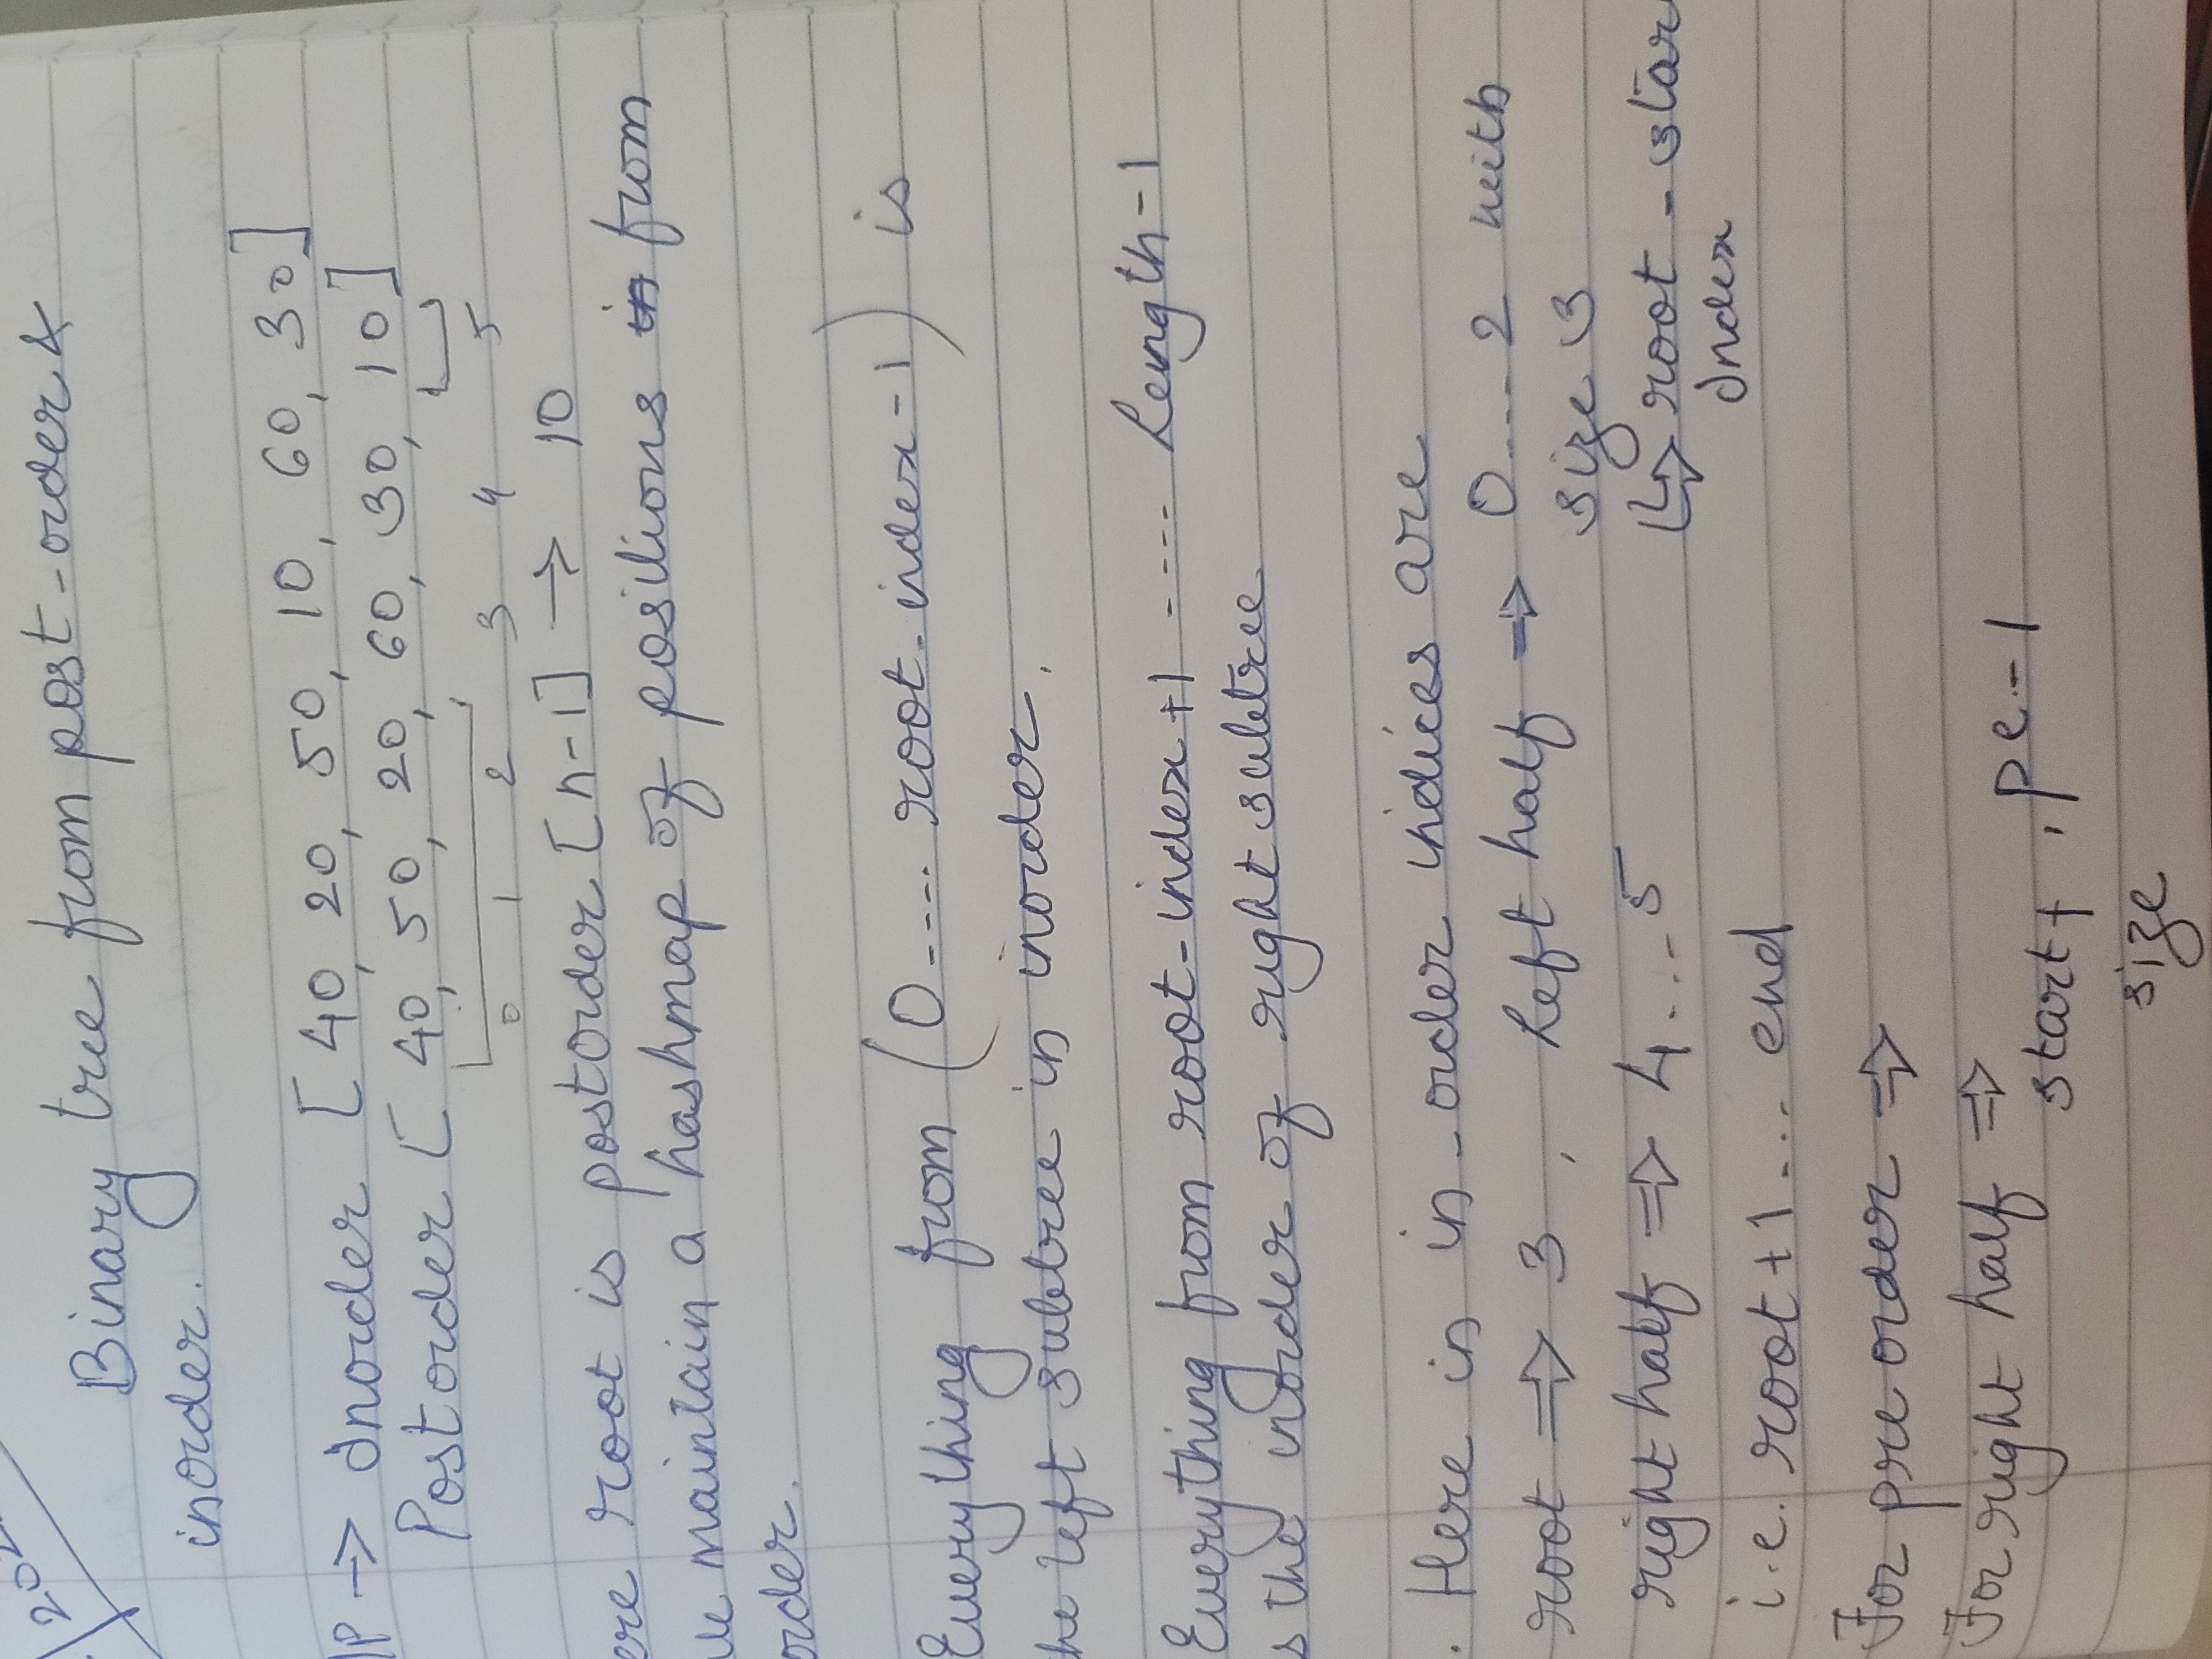 202
Binary tree from post-order &
inorder.
IP -> Inorder [40, 20, 50, 10, 60, 30]
Postorder [40, 50, 20, 60, 30, 10]
0 1 2 3 4 5
ere root is postorder [n-1] -> 10
maintain a hashmap of positions in from
order.
Everything from (0---- root-index-1) is
he left subtree in inorder.
Everything from root-index+1 ---- Length-1
s the inorder of right subtree
. Here in in-order indices are
root => 3, Left half => 0....2 with
size 3
right half => 4....5 ↳ root - star
Index
i.e. root+1.... end
For pre order =>
For right half =>
start+ , pe-1
size